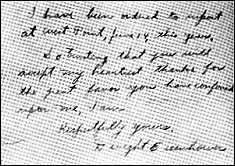 I have been ordered to report
at West Point, June 14 this year.
So trusting that you will
accept my heartiest thanks for
the great favor you have conferred
upon me, I am
Respectfully yours,
Dwight D Eisenhower